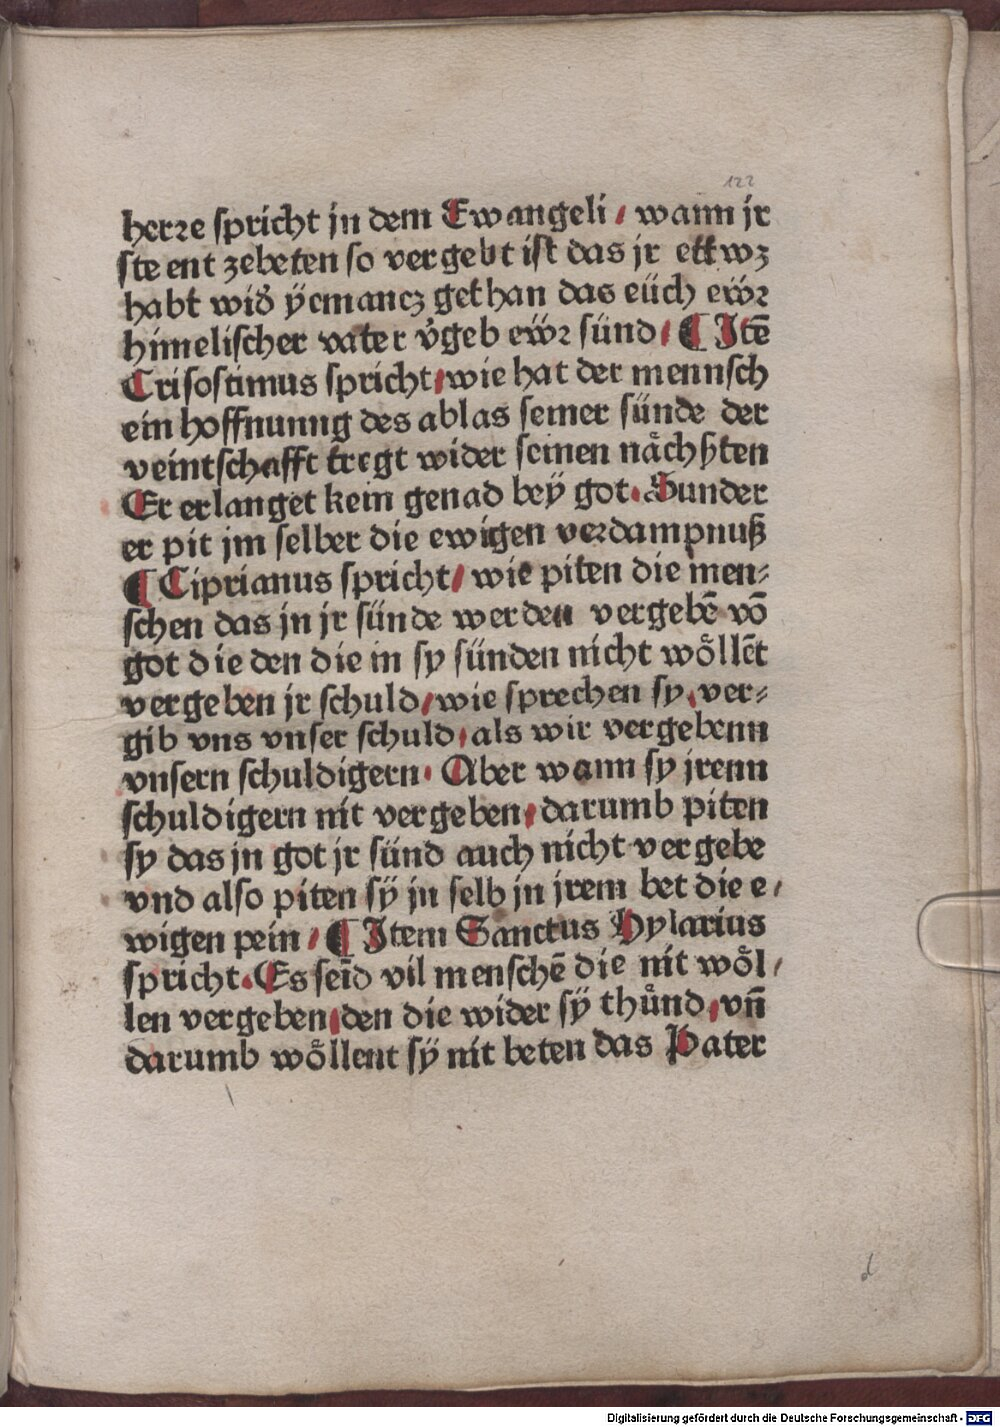 122
herꝛe spricht in dem Ewangeli / wann jr
ste ent zebeten so vergebt ist das jr ettwz
habt wid̕ ÿemancz gethan das eüch eẅꝛ
himelischer vater v̕geb eẅꝛ sünd / ¶ Itē
Crisostimus spricht / wie hat der mennsch
ein hoffnunng des ablas seiner sünde der
veintschafft tregt wider seinen nächsten
Er erlanget kein genad beÿ got. Sunder
er pit jm selber die ewigen veꝛdampnuß
¶ Ciprianus spricht / wie piten die men⸗
schen das jn jr sünde werden vergebē vō
got die den die in sy sünden nicht wöllēt
vergeben jr schuld / wie sprechen sy / ver⸗
gib vns vnser schuld / als wir vergebenn
vnsern schuldigern. Aber wann sy jrenn
schuldigern nit vergeben / darumb piten
sy das jn got jr sünd auch nicht vergebe
vnd also piten sÿ jn selb jn jrem bet die e/
wigen pein / ¶ Item Sanctus Hylarius
spricht. Es seīd vil menschē die nit wöl/
len vergeben / den die wider sÿ thůnd / vn̄
darumb wöllent sÿ nit beten das Pater
d
Digitalisierung gefördert durch die Deutsche Forschungsgemeinschaft - DFG